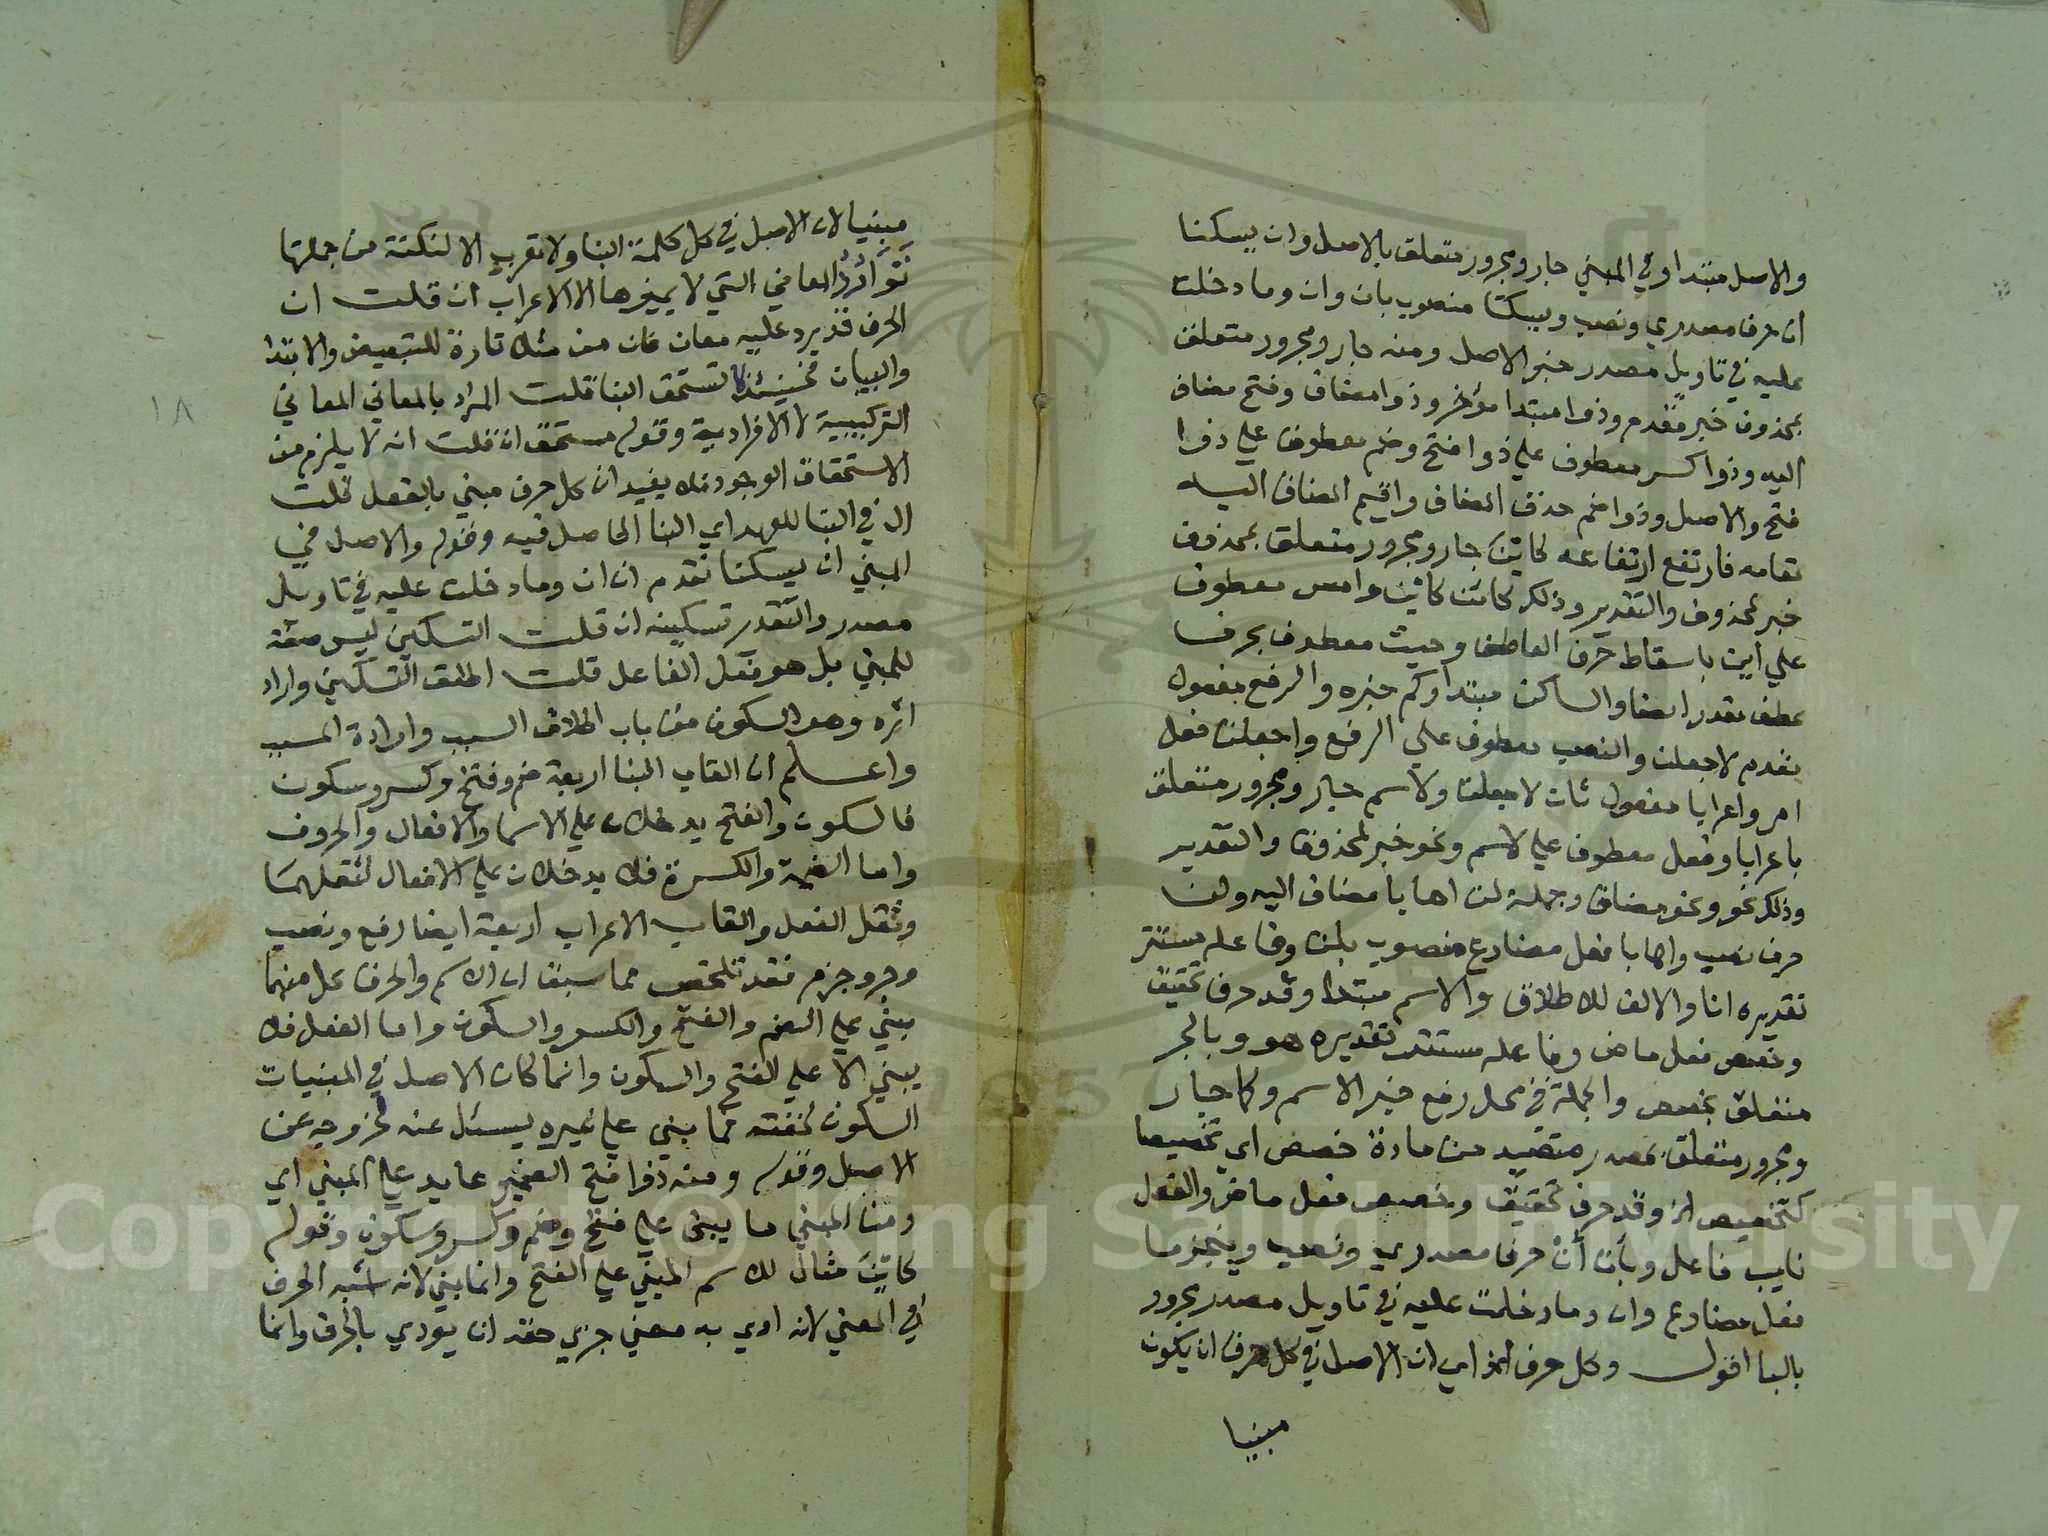 والاصل مبتدا وفي المبني جار ومجرور متعلق بالاصل وان يسكنا
ان حرف مصدري ونصب ويسكنا منصوب بان وان وما دخلت
عليه في تاويل مصدر خبر الاصل ومنه جار ومجرور متعلق
بمحذوف خبر مقدم وذوا مبتدا مؤخر وذوا مضاف وفتح مضاف
اليه وذوا كسر معطوف علي ذوا فتح وضم معطوف علي ذوا
فتح والاصل وذوا ضم حذف المضاف واقيم المضاف اليه
مقامه فارتفع ارتفاعه كاين جار ومجرور متعلق بمحذوف
خبر لمحذوف والتقدير وذلك كائن كاين وامس معطوف
علي اين باسقاط حرف العاطف وحيث معطوف بحرف
عطف مقدر ايضا والساكن مبتدا وكم خبره والرفع مفعول
مقدم لاجعلن والنصب معطوف علي الرفع واجعلن فعل
امر واعرابا مفعول ثان لاجعلن ولاسم جار ومجرور متعلق
باعرابا وفعل معطوف علي لاسم ونحو خبر لمحذوف والتقدير
وذلك نحو ونحو مضاف وجملة لن اهابا مضاف اليه ولن
حرف نصب واهابا فعل مضارع منصوب بلن وفاعله مستتر
تقديره انا والالف للاطلاق والاسم مبتدا وقد حرف تحقيق
وخصص فعل ماض وفاعله مستتر تقديره هو وبالجر
متعلق بخصص والجملة في محل رفع خبر الاسم وكما جار
ومجرور متعلق بمصدر متصيد من مادة خصص اي تخصيصا
كتخصيص الخ وقد حرف تحقيق وخصص فعل ماض والفعل
نايب فاعل وبان أن حرف مصدري ونصب وينجزما
فعل مضارع وان وما دخلت عليه في تاويل مصدر مجرور
بالبا اقول وكل حرف الخ اي ان الاصل في كل حرف ان يكون
مبنيا
مبنيا لان الاصل في كل كلمة البنا ولا تعرب الا لنكتة من جملتها
تَوَارُدُ المعاني التي لا يميزها الا الاعراب ان قلت ان
الحرف قد يرد عليه معان فان من مثلا تارة للتبعيض والابتدا
والبيان فحينئذ لا تستحق البنا قلت المراد بالمعاني المعاني
التركيبية لا الافرادية وقوله مستحق ان قلت انه لا يلزم من
الاستحقاق الوجود فلا يفيد ان كل حرف مبني بالفعل قلت
ال في البنا للعهد اي البنا الحاصل فيه وقوله والاصل في
المبني ان يسكنا تقدم ان ان وما دخلت عليه في تاويل
مصدر والتقدير تسكينه ان قلت التسكين ليس صفة
للمبني بل هو فعل الفاعل قلت اطلق التسكين واراد
اثره وهو السكون من باب اطلاق السبب وارادة المسبب
واعلم ان القاب البنا اربعة ضم وفتح وكسر وسكون
فالسكون والفتح يدخلان علي الاسما والافعال والحروف
واما الضمة والكسرة فلا يدخلان علي الافعال لثقلهما
وثقل الفعل والقاب الاعراب اربعة ايضا رفع ونصب
وجر وجزم فقد تلخص مما سبق ان الاسم والحرف كل منهما
مبني علي الضم والفتح والكسر والسكون واما الفعل فلا
يبني الا علي الفتح والسكون وانما كان الاصل في المبنيات
السكون لخفته فما بني علي غيره يسئل عنه لخروجه عن
الاصل وقوله ومنه ذوا فتح الضمير عايد علي المبني اي
ومن المبني ما يبنى علي فتح وضم وكسر وسكون وقوله
كاين مثال للاسم المبني علي الفتح وانما بني لانه اشبه الحرف
في المعني لانه ادي به معني جزي حقه ان يودي بالحرف وانما
١٨
Copyright © King Saud University
1957